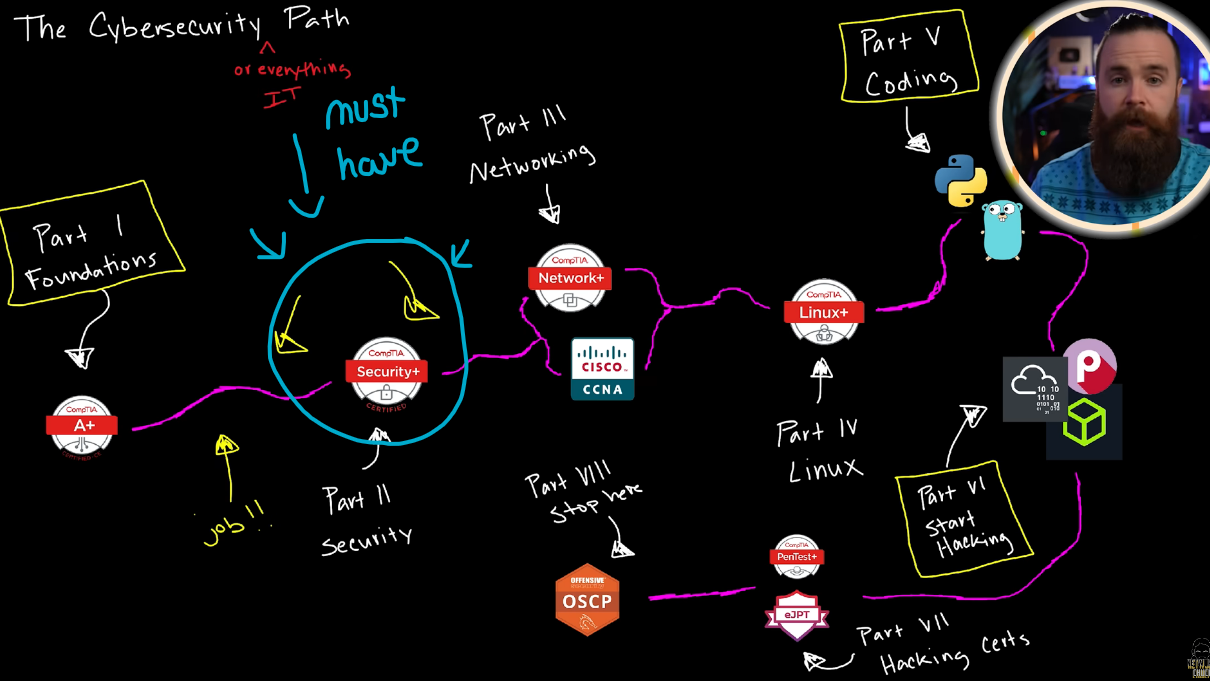 The Cybersecurity Path
^
or everything
IT
must
have
Part I
Foundations
CompTIA
A+
job!!
CompTIA
Security+
CERTIFIED
Part II
Security
Part III
Networking
CompTIA
Network+
CISCO
CCNA
CompTIA
Linux+
Part IV
Linux
Part V
Coding
10 10
1110
0101 01
01 010
P
Part VI
Start
Hacking
CompTIA
PenTest+
eJPT
Part VII
Hacking Certs
Part VIII
Stop here
OFFENSIVE
OSCP